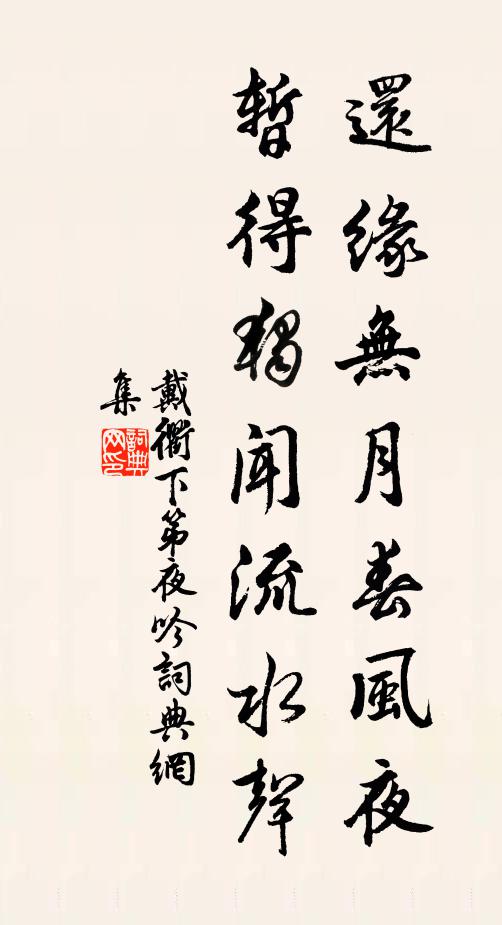 還緣無月春風夜
暫得獨聞流水聲
戴衢下第夜吟詞典網
集
詞典网印